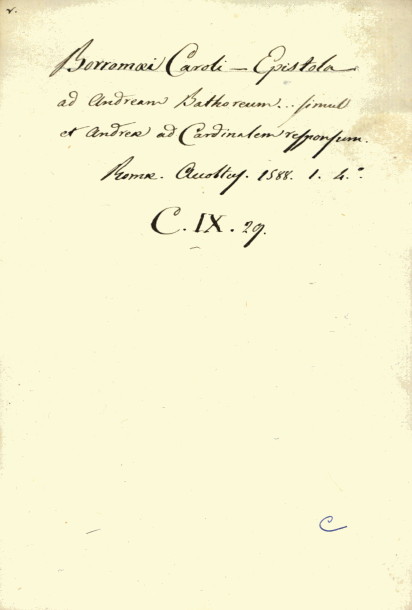 v.
Borromæi Caroli – Epistola
ad Andream Bathoreum.. simul
et Andreæ ad Cardinalem responsum.
Romæ. 1588. 1. 4.°
C. IX. 29.
C